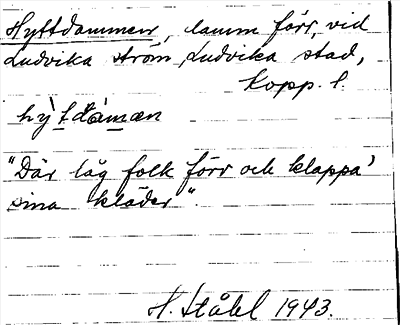 Hyttdammen, damm förr, vid
Ludvika ström, Ludvika stad,
Kopp. l.
hỳt dàmæn
"Där låg folk förr och klappa'
sina kläder".
H. Ståhl 1943.